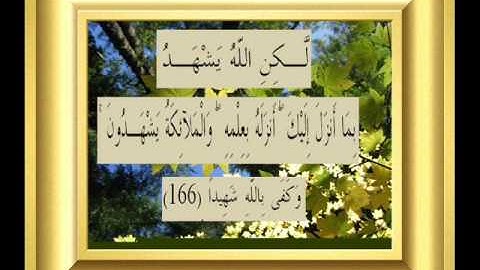 لَّـكِنِ اللّهُ يَشْهَـدُ
بِمَا أَنزَلَ إِلَيْكَ ۖ أَنزَلَهُ بِعِلْمِهِ ۖ وَالْمَلآئِكَةُ يَشْهَـدُونَ ۚ
وَكَفَى بِاللّهِ شَهِيداً (166)